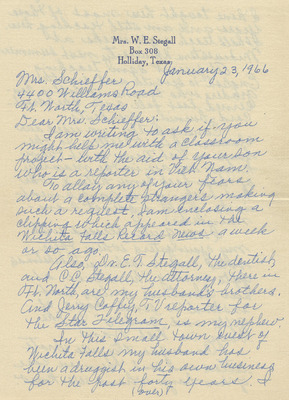 Mrs. W. E. Stegall
Box 308
Holliday, Texas
January 23, 1966
Mrs. Schieffer
4400 Williams Road
Ft. Worth, Texas
Dear Mrs. Schieffer:
I am writing to ask if you
might help me with a classroom
project - with the aid of your son
who is a reporter in Viet Nam.
To allay any of your fears
about a complete strangers making
such a request, I am enclosing a
clipping which appeared in the
Wichita Falls Record News a week
or so ago.
Also, Dr. E. T. Stegall, the dentist,
and C. C. Stegall, the attorney, there in
Ft. Worth, are my husband's brothers.
And Jerry Coffey, TV reporter for
the Star Telegram, is my nephew.
In this small town west of
Wichita Falls my husband has
been a druggist in his own business
for the past forty years. I
(over)